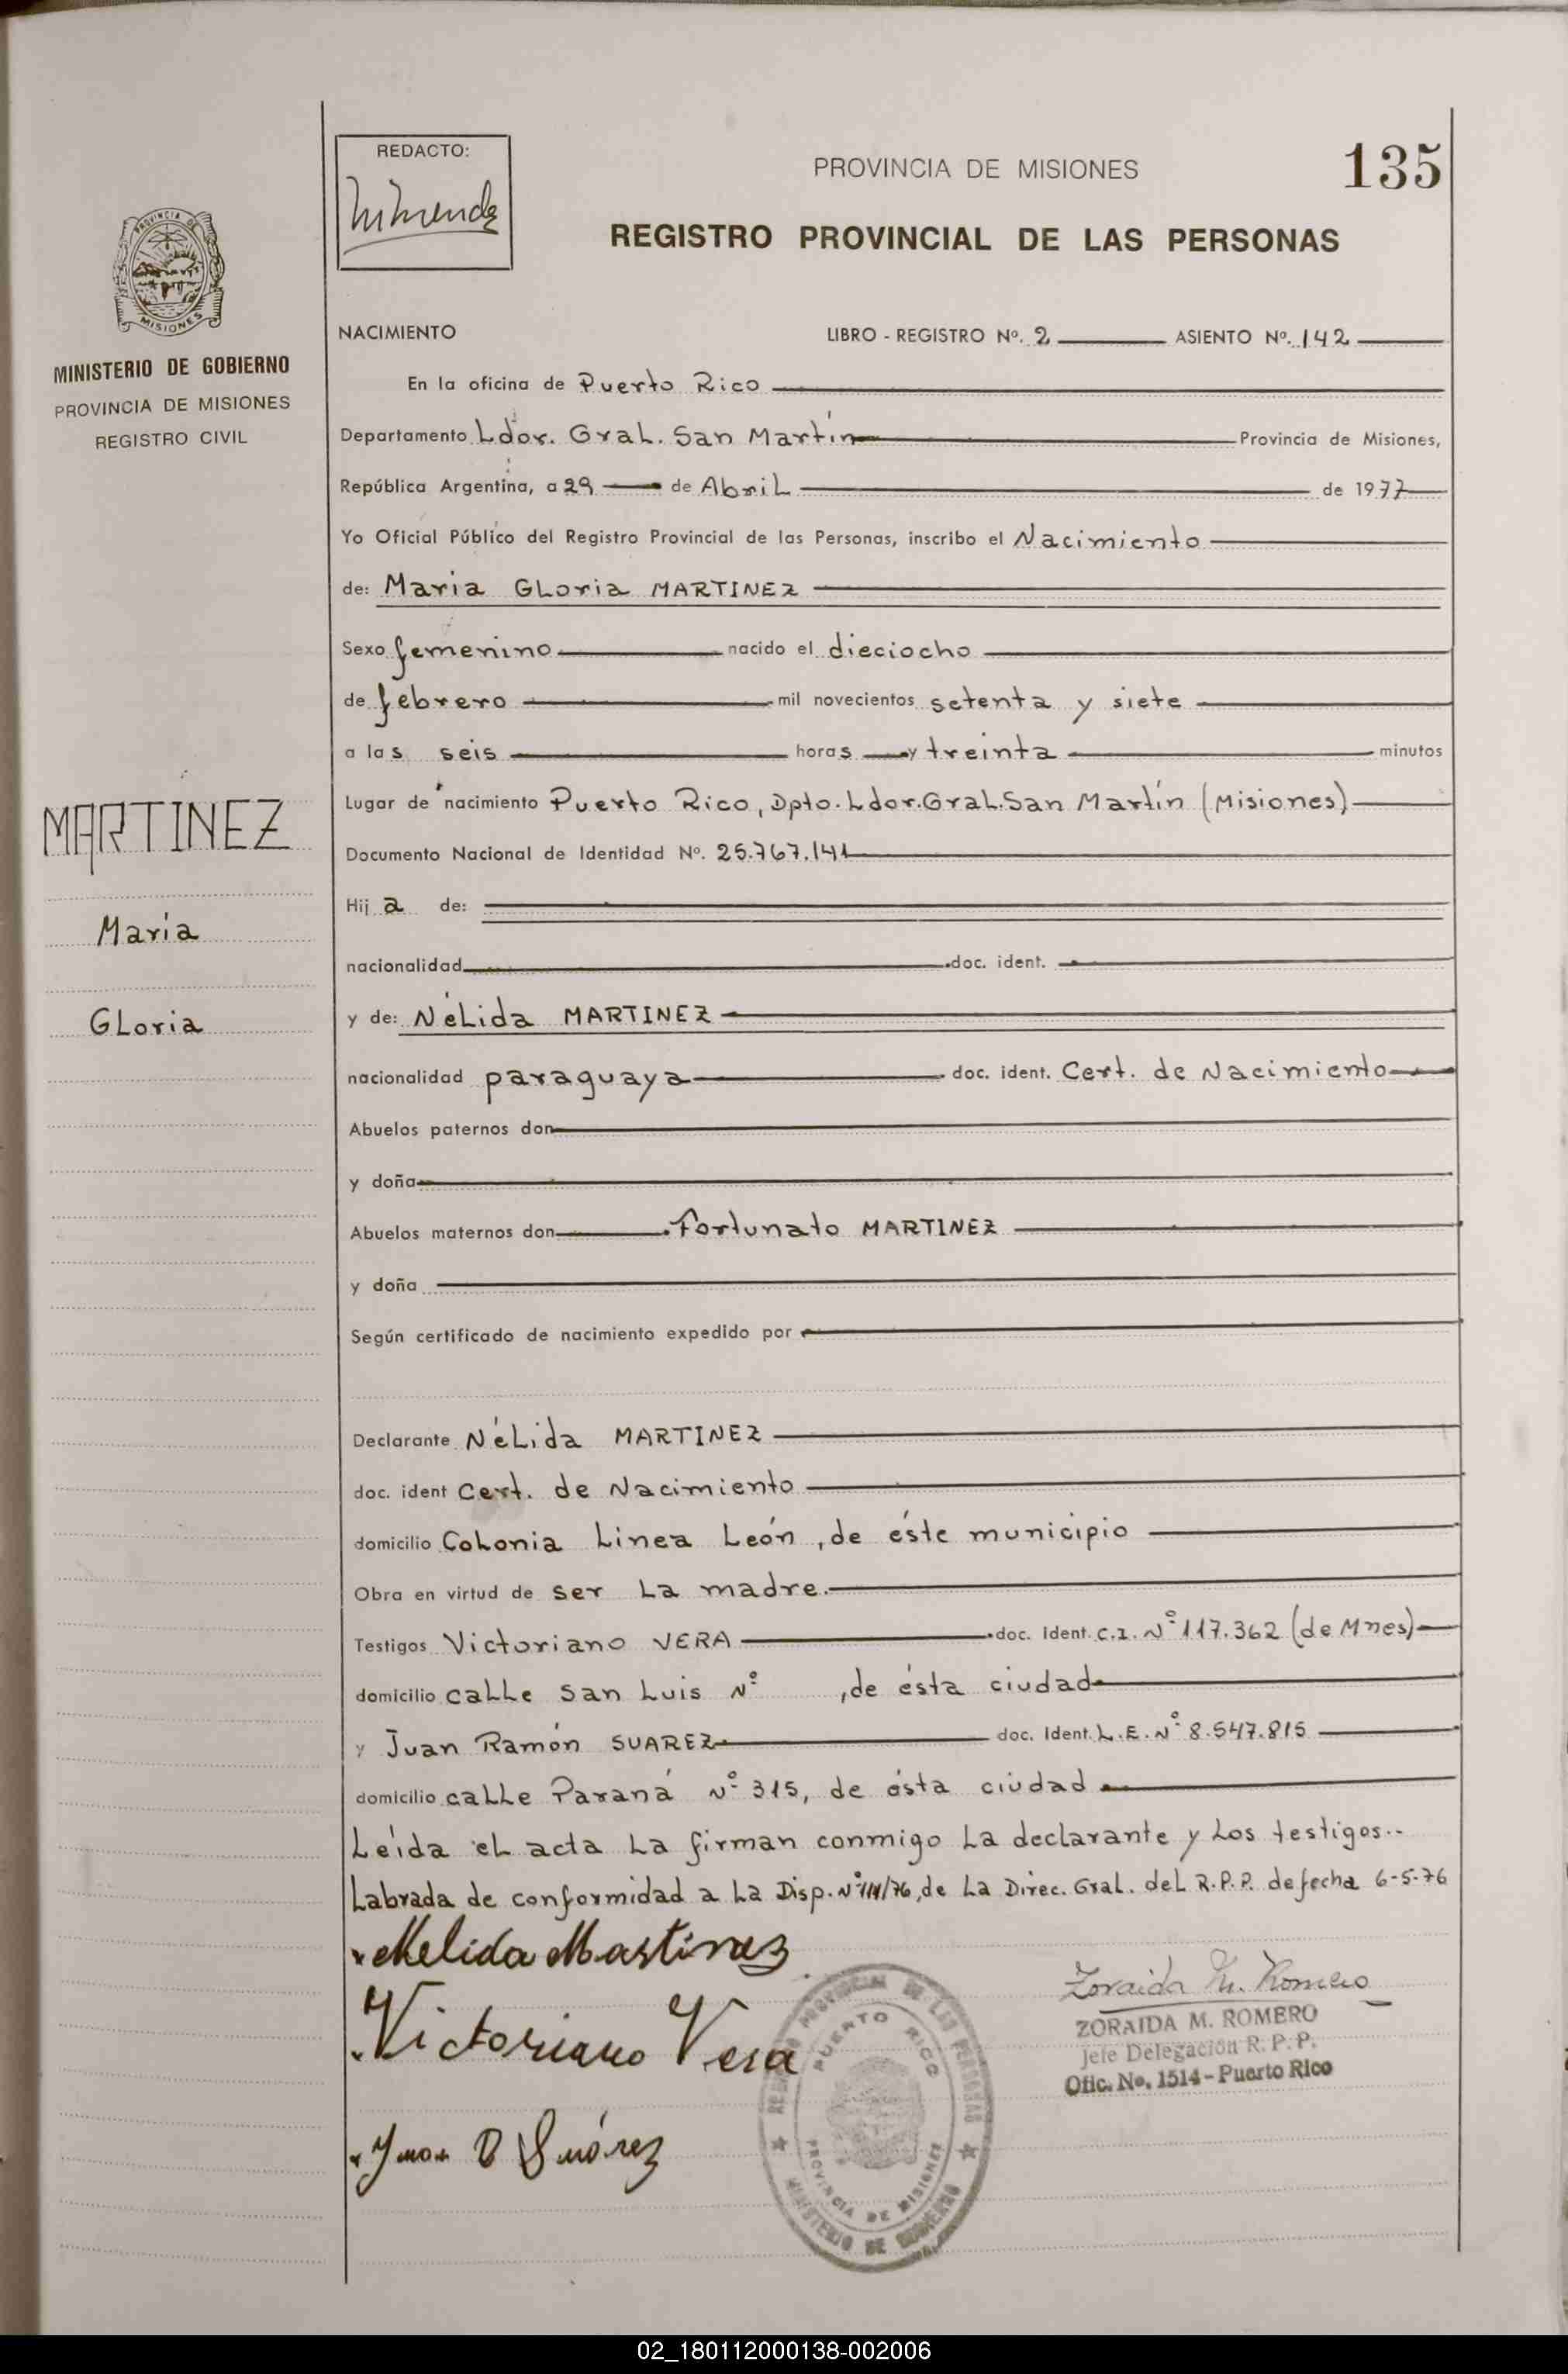 135
REDACTO:
PROVINCIA DE MISIONES
REGISTRO PROVINCIAL DE LAS PERSONAS
PROVINCIA DE
MISIONES
MINISTERIO DE GOBIERNO
PROVINCIA DE MISIONES
REGISTRO CIVIL
MARTINEZ
María
GLoria
NACIMIENTO LIBRO - REGISTRO Nº. 2 ASIENTO Nº. 142
En la oficina de Puerto Rico
Departamento Ldor. GraL. San Martín Provincia de Misiones,
República Argentina, a 29 de AbriL de 1977
Yo Oficial Público del Registro Provincial de las Personas, inscribo el Nacimiento
de: Maria GLoria MARTINEZ
Sexo femenino nacido el dieciocho
de febrero mil novecientos setenta y siete
a las seis horas y treinta minutos
Lugar de nacimiento Puerto Rico, Dpto. Ldor. GraL. San Martín (Misiones)
Documento Nacional de Identidad Nº. 25.767.141
Hij a de:
nacionalidad doc. ident.
y de: NéLida MARTINEZ
nacionalidad paraguaya doc. ident. Cert. de Nacimiento
Abuelos paternos don
y doña
Abuelos maternos don Fortunato MARTINEZ
y doña
Según certificado de nacimiento expedido por
Declarante NéLida MARTINEZ
doc. ident Cert. de Nacimiento
domicilio CoLonia Linea León, de éste municipio
Obra en virtud de ser La madre.
Testigos Victoriano VERA doc. ident. C.I. Nº 117.362 (de Mnes)
domicilio caLLe San Luis Nº , de ésta ciudad
y Juan Ramón SUAREZ doc. ident. L.E. Nº 8.547.815
domicilio caLLe Paraná Nº 315, de ésta ciudad
Leída eL acta La firman conmigo La declarante y Los testigos.-
Labrada de conformidad a La Disp. Nº 114/76, de La Direc. Gral. deL R.P.P. de fecha 6-5-76
Nelida Martinez
Victoriano Vera
Juan R Suárez
REGISTRO PROVINCIAL DE LAS PERSONAS
PUERTO RICO
PROVINCIA DE MISIONES
MINISTERIO DE GOBIERNO
Zoraida M. Romero
ZORAIDA M. ROMERO
Jefe Delegación R. P. P.
Ofic. No. 1514 - Puerto Rico
02_180112000138-002006